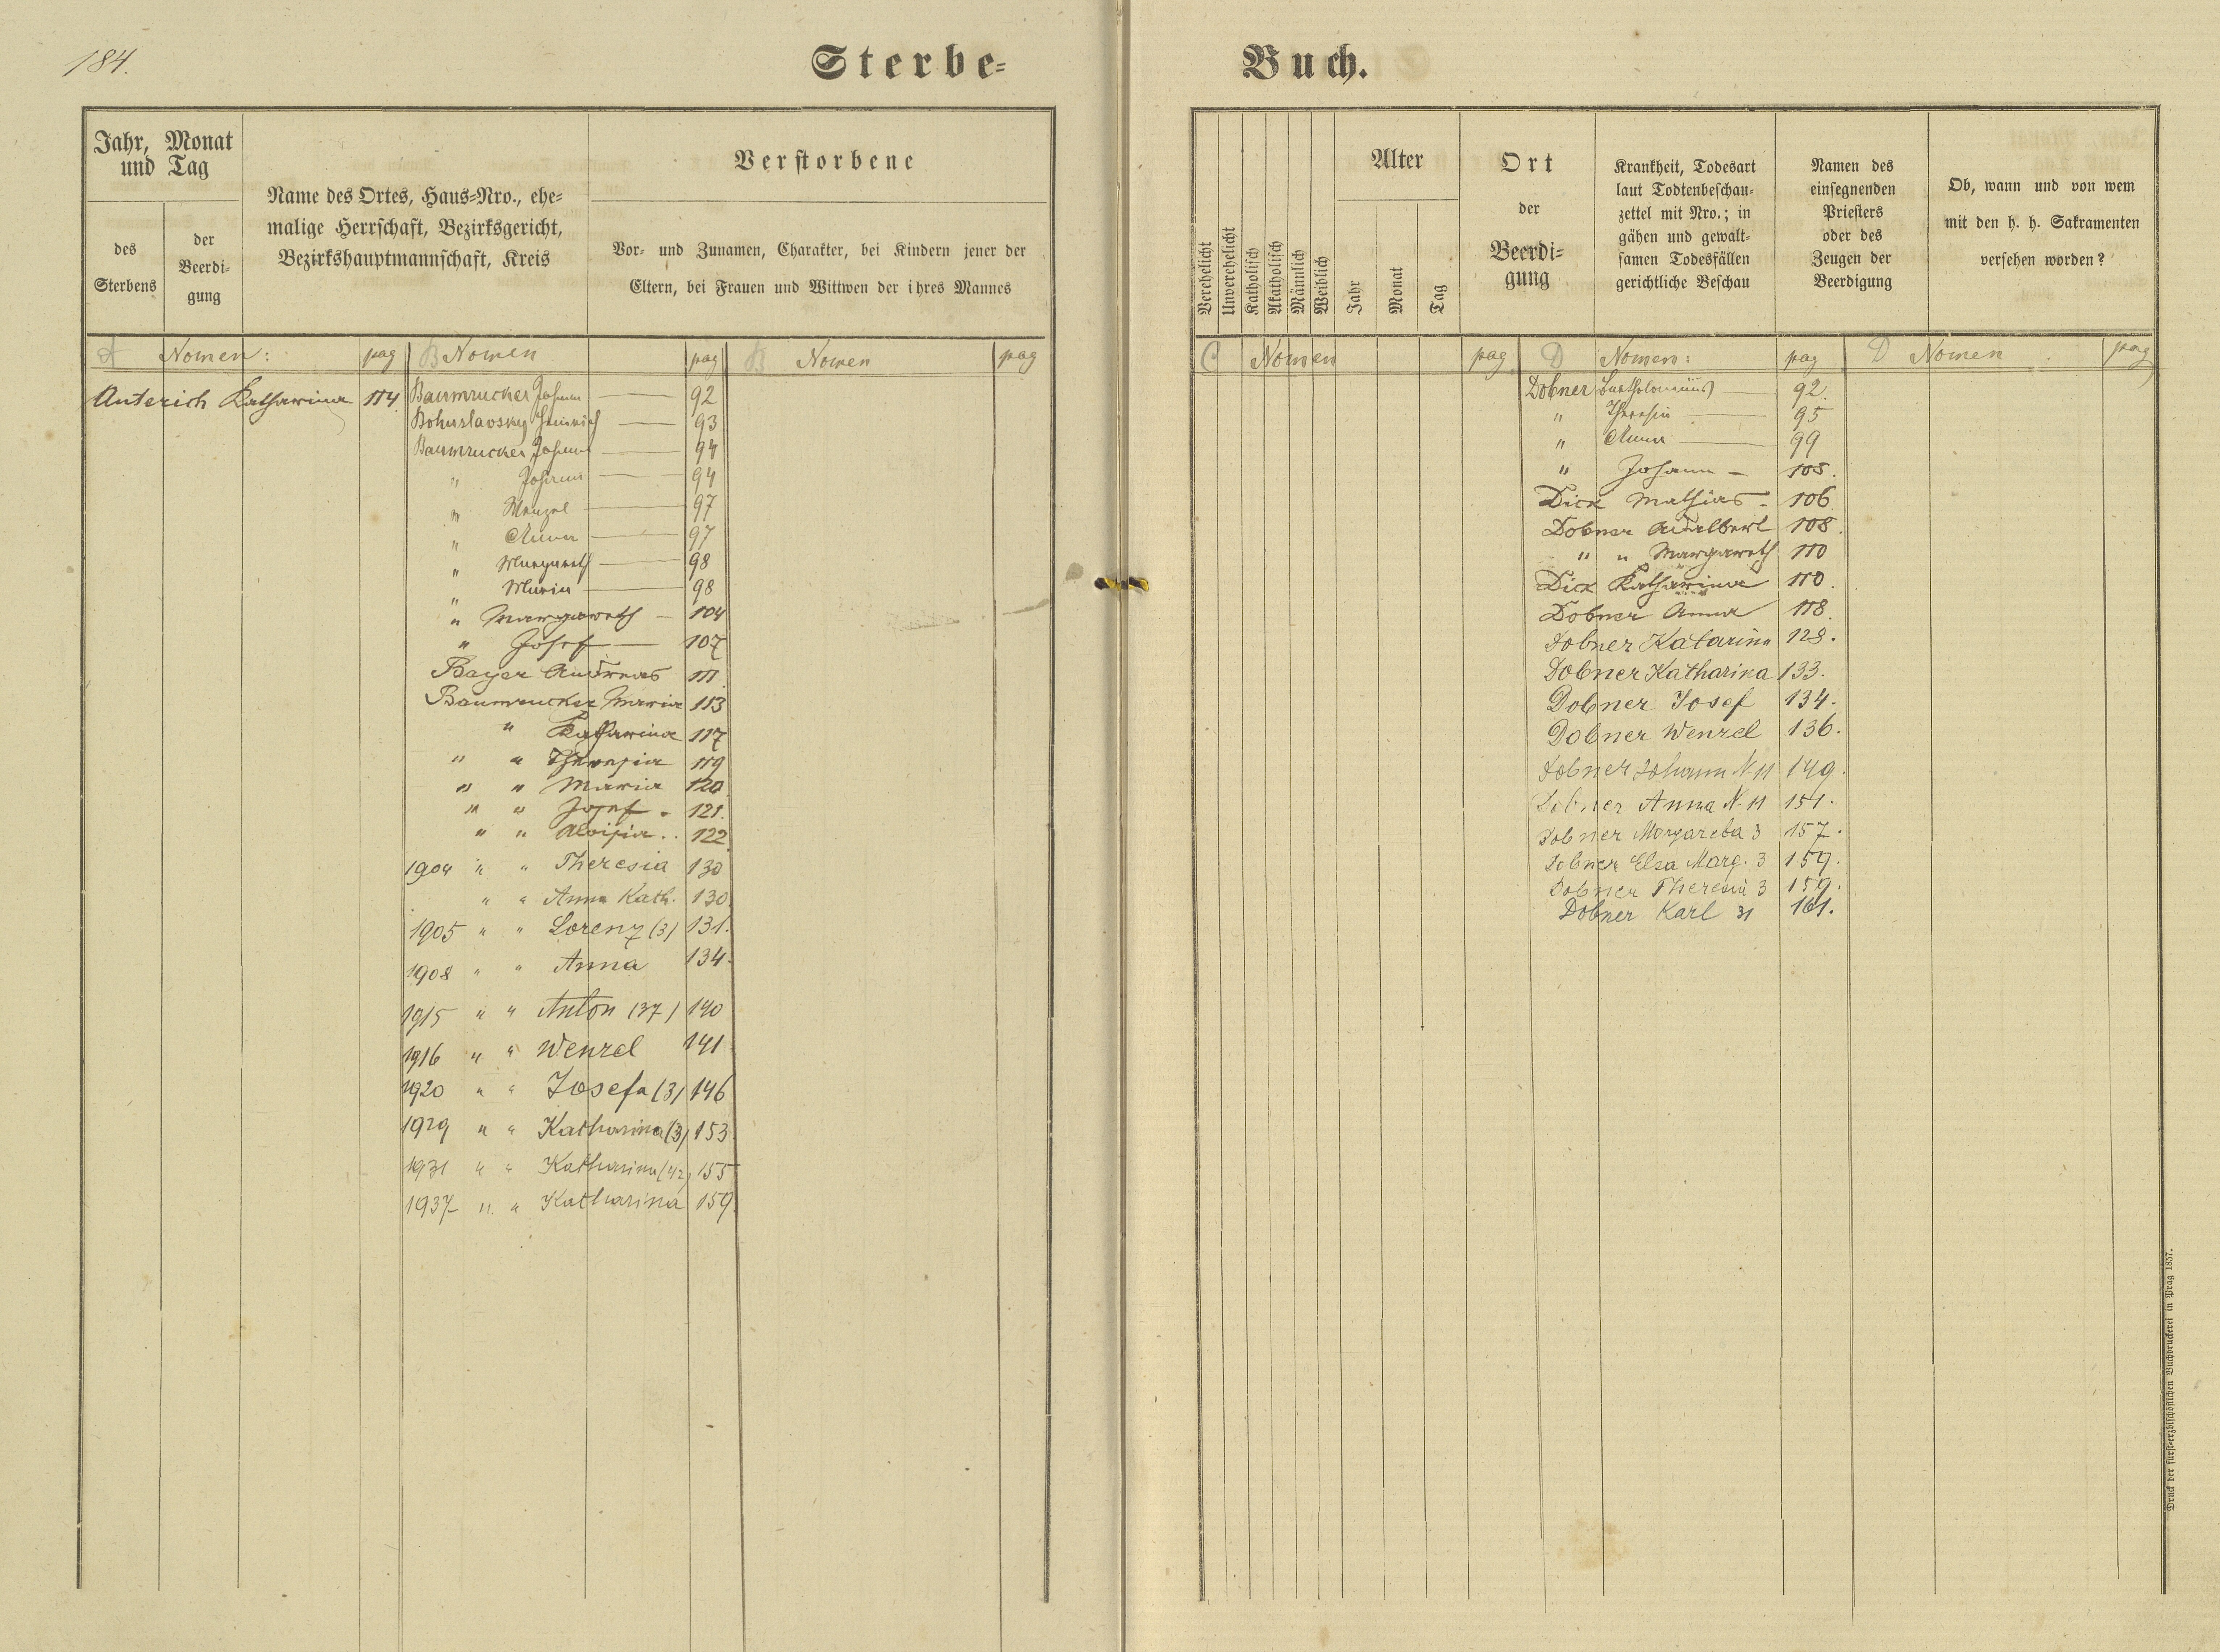 184.
Sterbe-
Jahr, Monat
und Tag
des
Sterbens
der
Beerdi-
gung
Name des Ortes, Haus-Nro., ehe-
malige Herrschaft, Bezirksgericht,
Bezirkshauptmannschaft, Kreis
Verstorbene
Vor- und Zunamen, Charakter, bei Kindern jener der
Eltern, bei Frauen und Wittwen der ihres Mannes
A Nomen: pag B Nomen pag B Nomen pag
Anterich Katharina 114
Baumrucker Johann — 92
Bohuslavsky Heinrich — 93
Baumrucker Johann — 94
" Johann — 94
" Wenzel — 97
" Anna — 97
" Margareth — 98
" Maria — 98
" Margareth — 104
" Josef — 107
Bayer Andreas 111.
Baumrucker Maria 113
" Katharina 117
" " Theresia 119
" " Maria 120
" " Josef - 121.
" " Aloisia .. 122
1904 " " Theresia 130
" " Anna Kath. 130.
1905 " " Lorenz (3) 131.
1908 " " Anna 134.
1915 " " Anton (37) 140
1916 " " Wenzel 141
1920 " " Josefa (3) 146
1929 " " Katharina (3) 153
1931 " " Katharina (42) 155
1937 " " Katharina 159.
Buch.
Verehelicht
Unverehelicht
Katholisch
Akatholisch
Männlich
Weiblich
Alter
Jahr
Monat
Tag
Ort
der
Beerdi-
gung
Krankheit, Todesart
laut Todtenbeschau-
zettel mit Nro.; in
gähen und gewalt-
samen Todesfällen
gerichtliche Beschau
Namen des
einsegnenden
Priesters
oder des
Zeugen der
Beerdigung
Ob, wann und von wem
mit den h. h. Sakramenten
versehen worden?
C Nomen pag D Nomen: pag D Nomen pag
Dobner Bartholomäus — 92.
" Theresia — 95
" Anna — 99
" Johann — 105.
Dick Mathias - 106
Dobner Adalbert 108.
" " Margareth 110
Dick Katharina 110.
Dobner Anna 118.
Dobner Katarina 128.
Dobner Katharina 133.
Dobner Josef 134.
Dobner Wenzel 136.
Dobner Johann N. 11 149.
Dobner Anna N. 11 151.
Dobner Margareta 3 157.
Dobner Elsa Marg. 3 159.
Dobner Theresia 3 159.
Dobner Karl 31 161.
Druck der fürsterzbischöflichen Buchdruckerei in Prag 1857.